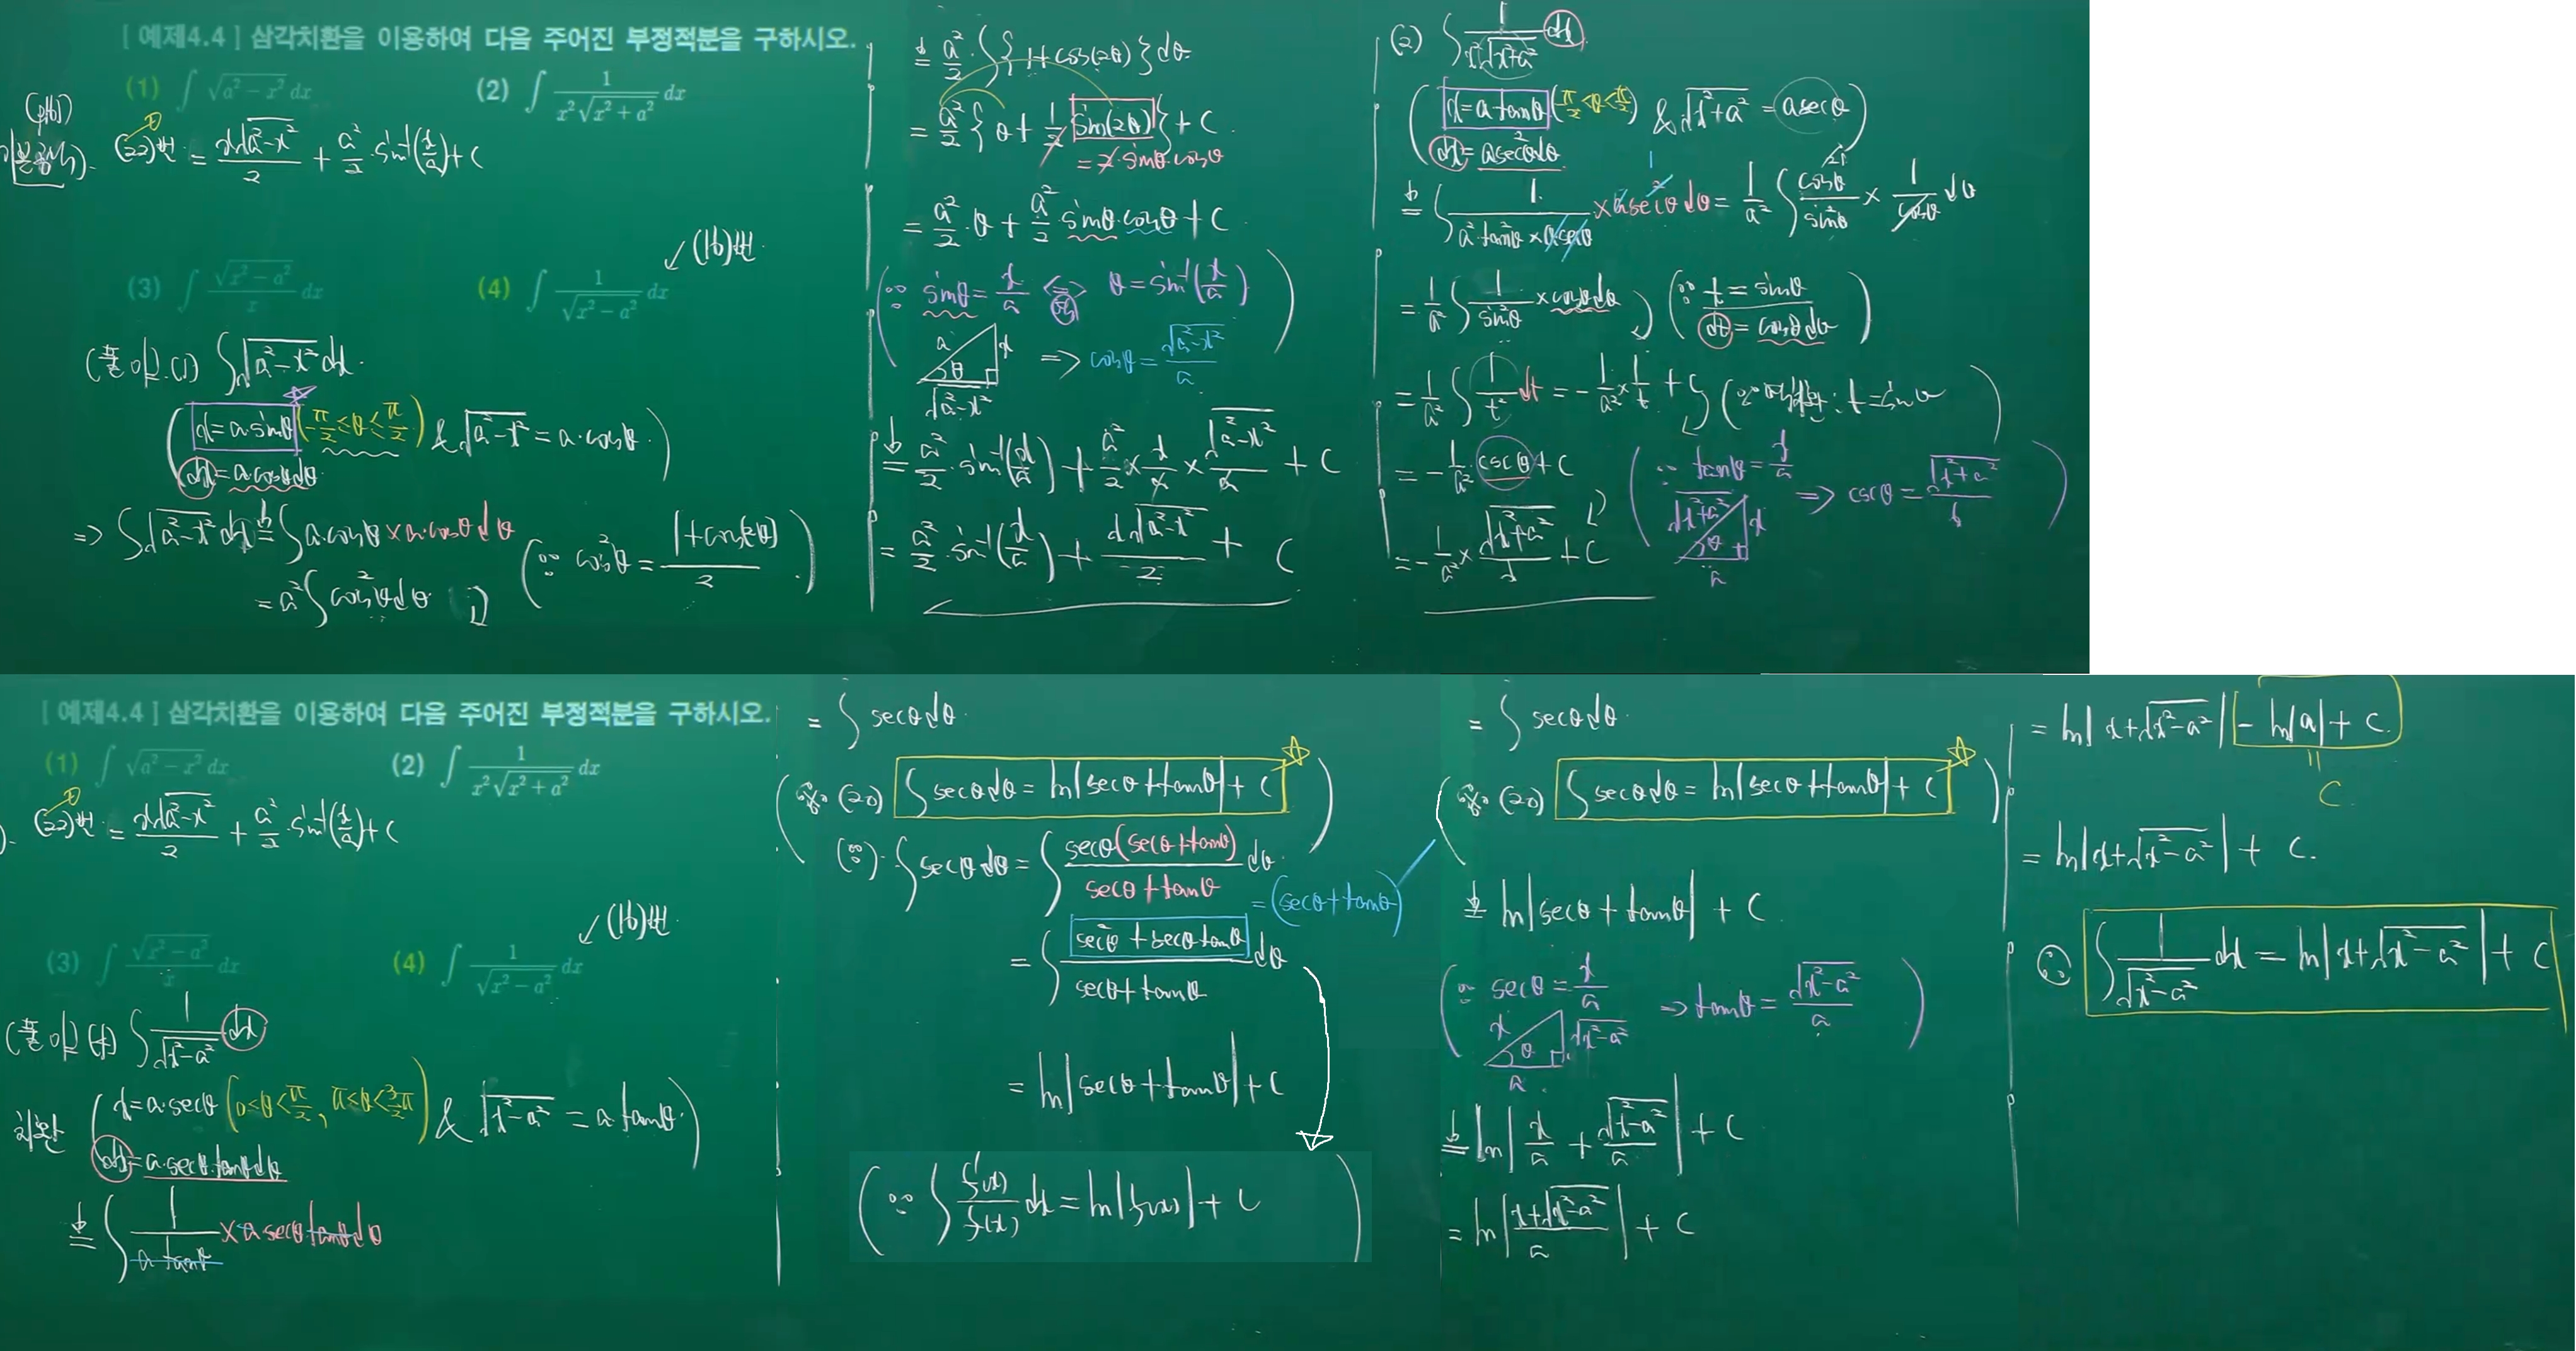 [ 예제4.4 ] 삼각치환을 이용하여 다음 주어진 부정적분을 구하시오.
(1) ∫ √(a² − x²) dx
(2) ∫ 1/(x²√(x² + a²)) dx
(22)번 = x√(a²−x²)/2 + a²/2 · sin⁻¹(x/a) + C
(3) ∫ √(x² − a²)/x dx
(4) ∫ 1/√(x² − a²) dx
↙ (16)번.
(풀이) (1) ∫ √(a²−x²) dx.
( x = a·sinθ (−π/2 ≤ θ ≤ π/2) & √(a²−x²) = a·cosθ. )
dx = a·cosθdθ
=> ∫ √(a²−x²) dx = ∫ a·cosθ × a·cosθ dθ
= a² ∫ cos²θ dθ
( ∵ cos²θ = (1+cos(2θ))/2 . )
= a²/2 · ∫ { 1 + cos(2θ) } dθ
= a²/2 { θ + 1/2 sin(2θ) } + C.
= 2·sinθ·cosθ
= a²/2 · θ + a²/2 · sinθ·cosθ + C
( ∵ sinθ = x/a <=> θ = sin⁻¹(x/a) )
a x θ √(a²−x²) => cosθ = √(a²−x²)/a
= a²/2 · sin⁻¹(x/a) + a²/2 × x/a × √(a²−x²)/a + C
= a²/2 · sin⁻¹(x/a) + x√(a²−x²)/2 + C
(2) ∫ 1/(x²√(x²+a²)) dx
( x = a·tanθ (π/2 < θ < π/2) & √(x²+a²) = a secθ )
dx = a sec²θdθ
= ∫ 1/(a²·tan²θ × a·secθ) × a sec²θ dθ = 1/a² ∫ cos²θ/sin²θ × 1/cosθ dθ
= 1/a² ∫ 1/sin²θ × cosθdθ ( ∵ t = sinθ
dt = cosθdθ )
= 1/a² ∫ 1/t² dt = − 1/a² × 1/t + C ( ∵ : t = sinθ )
= − 1/a² · cscθ + C ( ∵ tanθ = x/a
√(x²+a²) x θ a => cscθ = √(x²+a²)/x )
= − 1/a² × √(x²+a²)/x + C
[ 예제4.4 ] 삼각치환을 이용하여 다음 주어진 부정적분을 구하시오.
(1) ∫ √(a² − x²) dx
(2) ∫ 1/(x²√(x² + a²)) dx
(22)번 = x√(a²−x²)/2 + a²/2 · sin⁻¹(x/a) + C
(3) ∫ √(x² − a²)/x dx
(4) ∫ 1/√(x² − a²) dx
↙ (16)번.
(풀이) (4) ∫ 1/√(x²−a²) dx
치환 ( x = a·secθ (0≤θ<π/2, π≤θ<3/2π) & √(x²−a²) = a·tanθ. )
dx = a·secθ·tanθdθ
= ∫ 1/(a·tanθ) × a·secθ·tanθdθ
= ∫ secθdθ.
(20) ∫ secθdθ = ln|secθ+tanθ| + C ☆
(∵) · ∫ secθdθ = ∫ secθ(secθ+tanθ)/(secθ+tanθ) dθ.
= (secθ+tanθ)′
= ∫ (sec²θ + secθtanθ)/(secθ+tanθ) dθ
= ln|secθ+tanθ| + C
( ∵ ∫ f′(x)/f(x) dx = ln|f(x)| + C )
= ∫ secθdθ.
(20) ∫ secθdθ = ln|secθ+tanθ| + C ☆
= ln|secθ + tanθ| + C.
( ∵ secθ = x/a => tanθ = √(x²−a²)/a )
x θ √(x²−a²) a.
= ln| x/a + √(x²−a²)/a | + C
= ln| (x+√(x²−a²))/a | + C
= ln| x+√(x²−a²) | − ln|a| + C.
= C.
= ln|x+√(x²−a²)| + C.
∴ ∫ 1/√(x²−a²) dx = ln|x+√(x²−a²)| + C